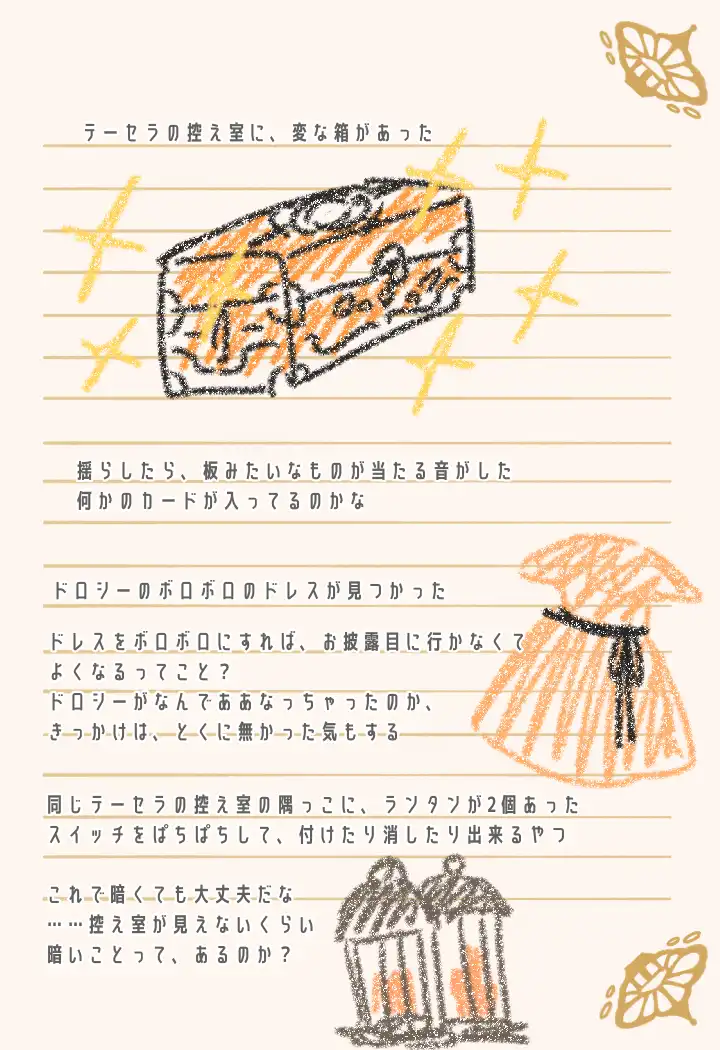 テーセラの控え室に、変な箱があった
揺らしたら、板みたいなものが当たる音がした
何かのカードが入ってるのかな
ドロシーのボロボロのドレスが見つかった
ドレスをボロボロにすれば、お披露目に行かなくて
よくなるってこと？
ドロシーがなんでああなっちゃったのか、
きっかけは、とくに無かった気もする
同じテーセラの控え室の隅っこに、ランタンが2個あった
スイッチをぱちぱちして、付けたり消したり出来るやつ
これで暗くても大丈夫だな
……控え室が見えないくらい
暗いことって、あるのか？